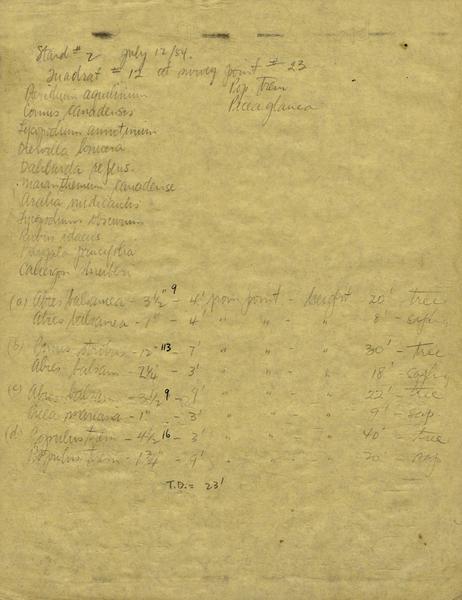 Stand # 2 July 12/54.
Quadrat # 1 at survey point # 23
Pteridium aquilinum Pop. trem
Cornus canadensis Picea glauca
Lycopodium annotinum
Diervilla lonicera
Dalibarda repens
Maianthemum canadense
Aralia nudicaulis
Lycopodium obscurum
Rubus idaeus
Calliergon schreberi
(a) Abies balsamea - 3½" 9 - 4' from point - height 20' tree
Abies balsamea - 1" - 4' " " " 8' - sapling
(b) Pinus strobus - 12" 113 - 7' " " " 30' - tree
Abies balsam - 2¼" - 3' " " " 18' sapling
(c) Abies balsam - 3½" 9 - 9' " " " 22' - tree
Picea mariana - 1" - 3' " " " 9' - sap
(d) Populus trem - 4½" 16 - 3' " " " 40' - tree
Populus trem - 1¾" - 9' " " " 20' - sap
T.D. = 23'